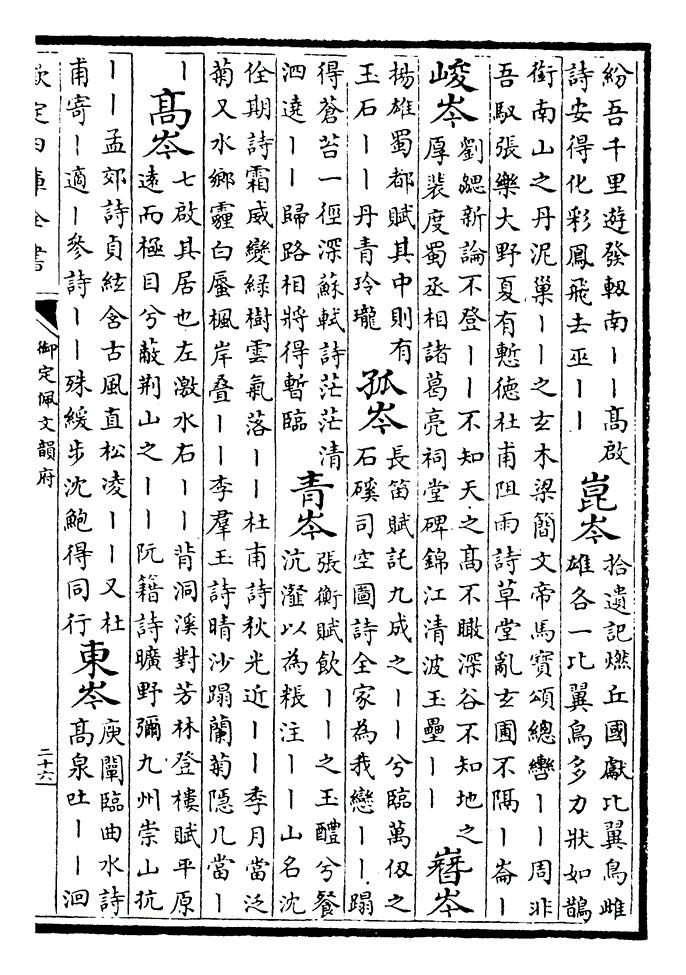 紛吾千里遊發軔南丨丨髙啟
詩安得化彩鳳飛去巫丨丨
崑岑
拾遺記燃丘國獻比翼鳥雌
雄各一比翼鳥多力狀如鵲
銜南山之丹泥巢丨丨之玄木梁簡文帝馬寳頌總轡丨丨周非
吾馭張樂大野夏有慙徳杜甫阻雨詩草堂亂玄圃不隔丨崙丨
峻岑
劉勰新論不登丨丨不知天之髙不瞰深谷不知地之
厚裴度蜀丞相諸葛亮祠堂碑錦江清波玉壘丨丨
嶜岑
揚雄蜀都賦其中則有
玉石丨丨丹青玲瓏
孤岑
長笛賦託九成之丨丨兮臨萬仭之
石磎司空圖詩全家為我戀丨丨蹋
得蒼苔一徑深蘇軾詩茫茫清
泗遶丨丨歸路相將得暫臨
青岑
張衡賦飲丨丨之玉醴兮餐
沆瀣以為粻注丨丨山名沈
佺期詩霜威變緑樹雲氣落丨丨杜甫詩秋光近丨丨季月當泛
菊又水鄉霾白蜃楓岸疊丨丨李羣玉詩晴沙蹋蘭菊隱几當丨
丨
髙岑
七啟其居也左激水右丨丨背洞溪對芳林登樓賦平原
遠而極目兮蔽荆山之丨丨阮籍詩曠野彌九州崇山抗
丨丨孟郊詩貞絃含古風直松凌丨丨又杜
甫寄丨適丨參詩丨丨殊緩步沈鮑得同行
東岑
庾闡臨曲水詩
髙泉吐丨丨洄
欽定四庫全書
御定佩文韻府
二十六